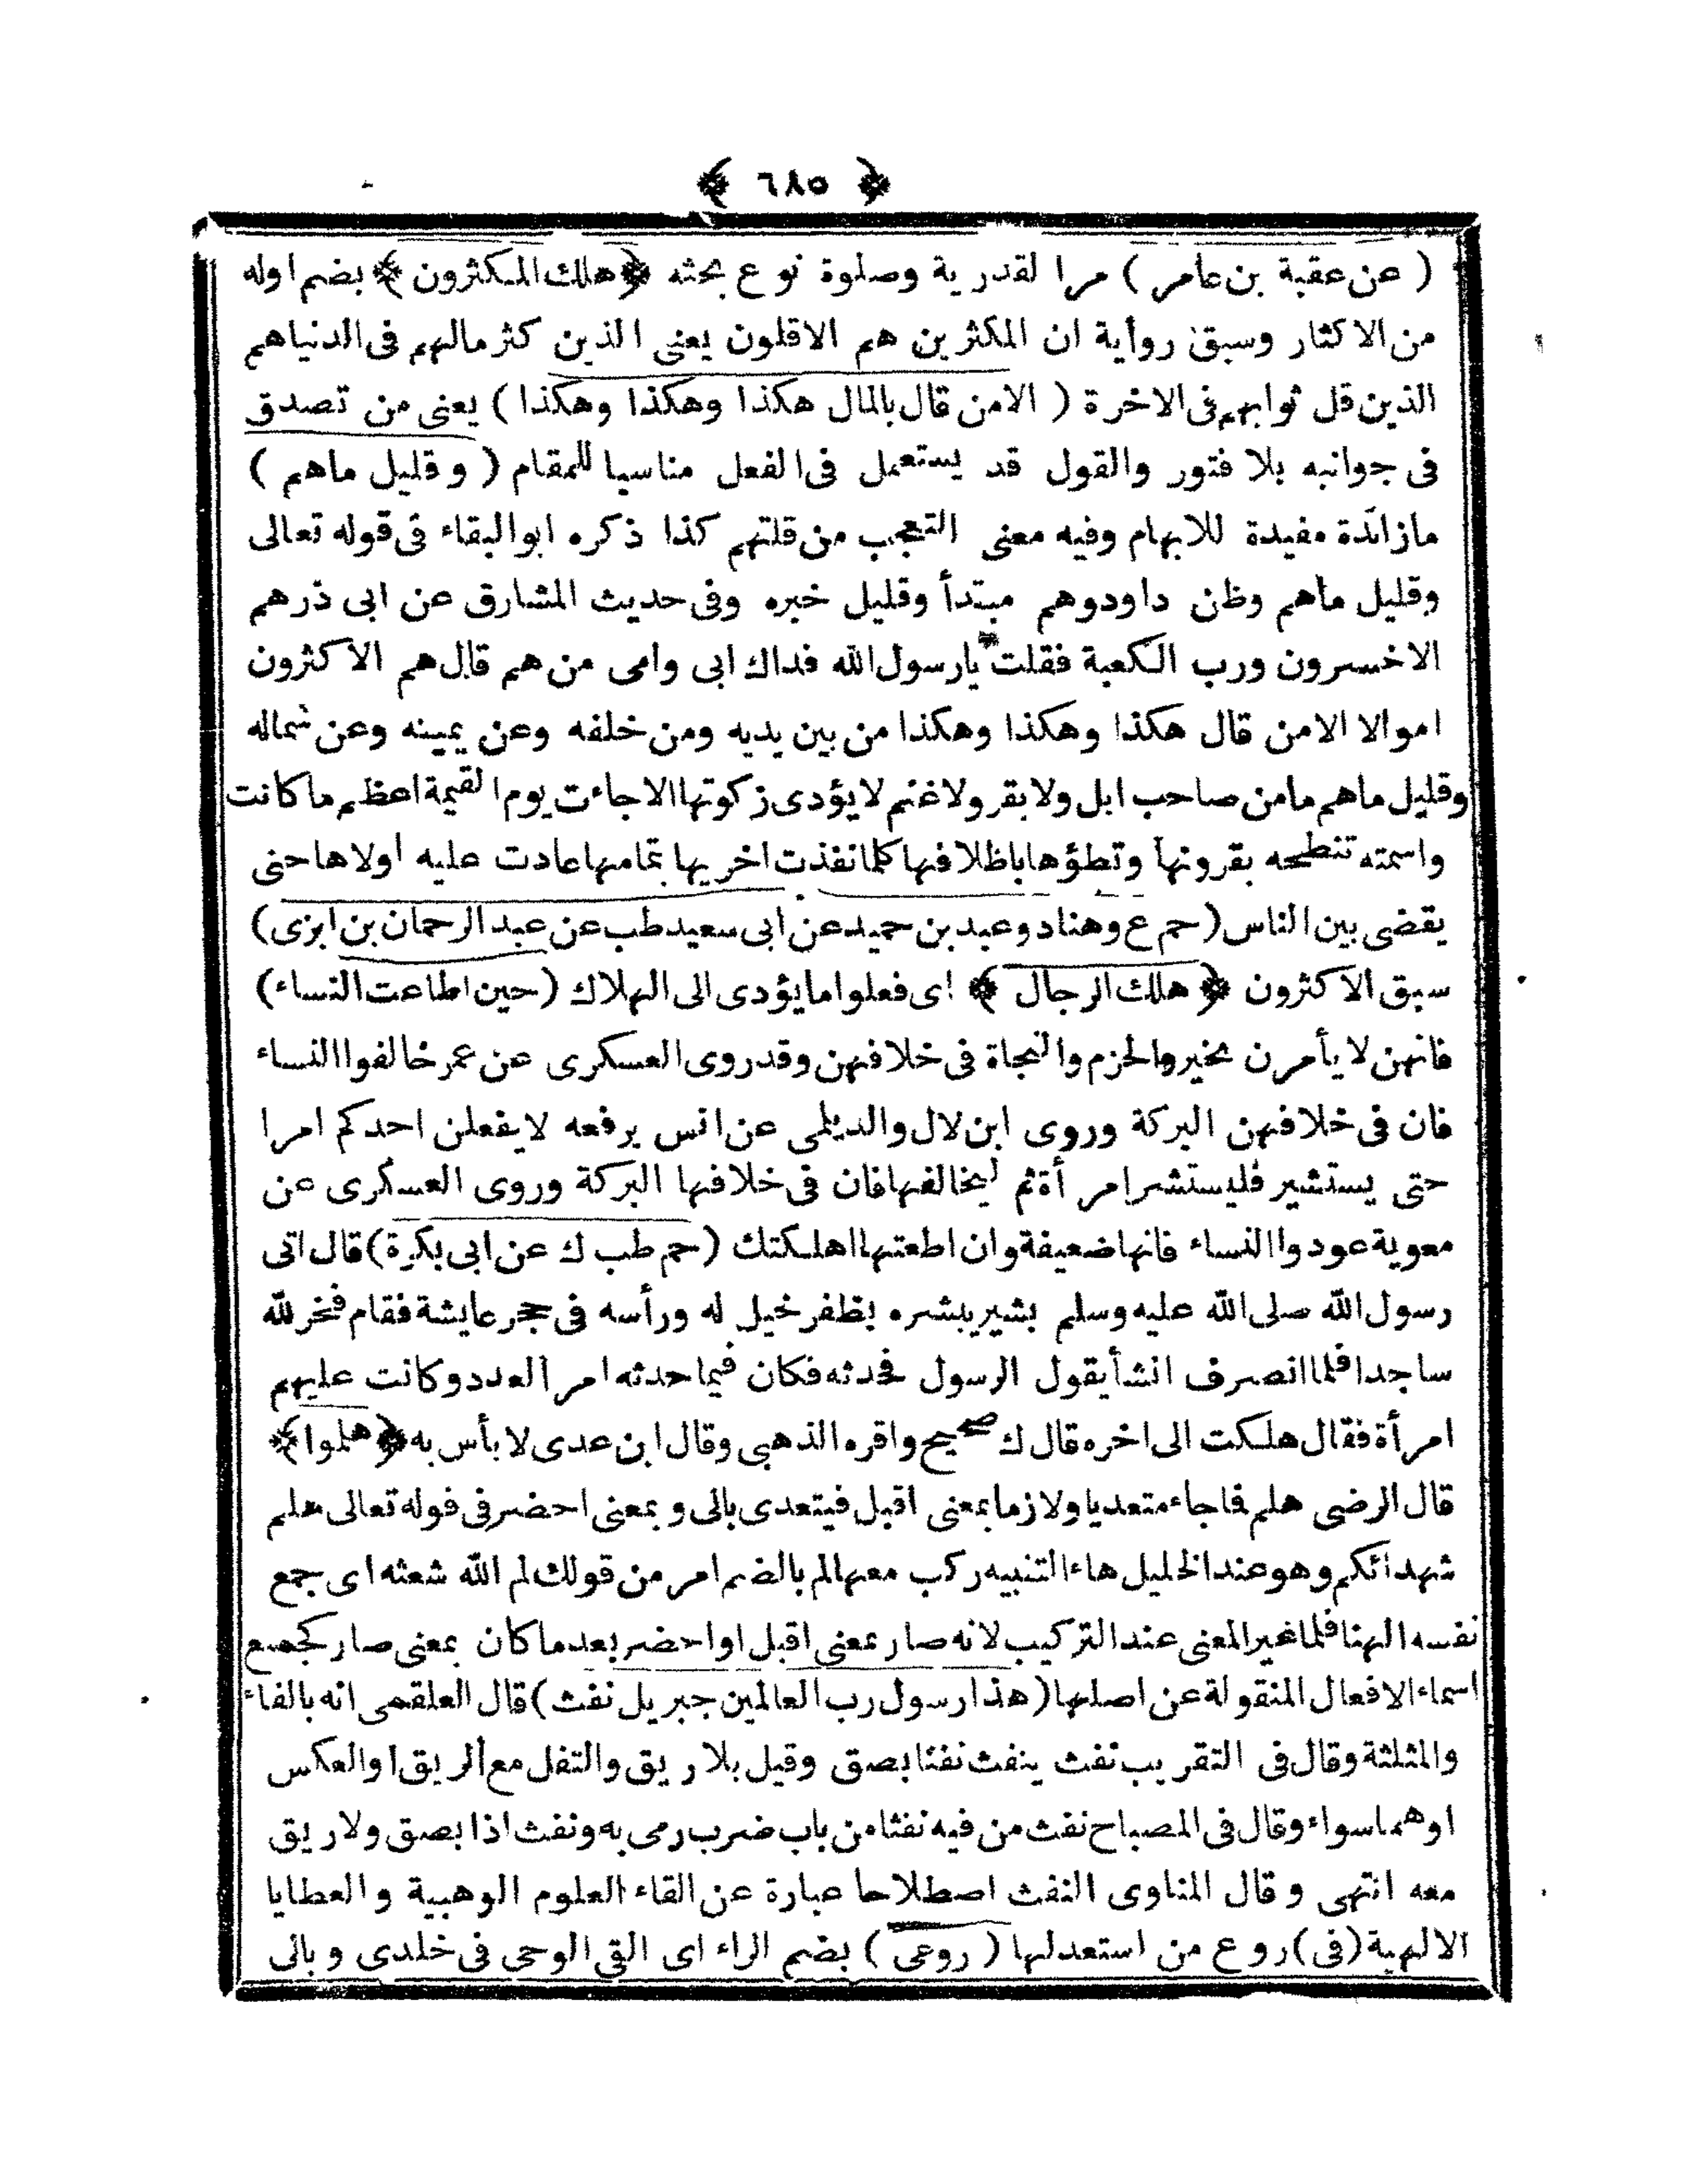 ﴿ ٦٨٥ ﴾
( عن عقبة بن عامر ) مرا لقدرية وصلوة نوع بحثه ﴿هلك المكثرون﴾ بضم اوله
من الاكثار وسبق رواية ان المكثرين هم الاقلون يعنى الذين كثر مالهم فى الدنياهم
الذين قل ثوابهم فى الاخرة ( الامن قال بالمال هكذا وهكذا وهكذا ) يعنى من تصدق
فى جوانبه بلا فتور والقول قد يستعمل فى الفعل مناسبا للمقام ( وقليل ماهم )
مازائدة مفيدة للابهام وفيه معنى التعجب من قلتهم كذا ذكره ابوالبقاء فى قوله تعالى
وقليل ماهم وظن داودوهم مبتدأ وقليل خبره وفى حديث المشارق عن ابى ذرهم
الاخسرون ورب الكعبة فقلت يارسول الله فداك ابى وامى من هم قال هم الاكثرون
اموالا الامن قال هكذا وهكذا وهكذا من بين يديه ومن خلفه وعن يمينه وعن شماله
وقليل ماهم مامن صاحب ابل ولابقر ولاغنم لايؤدى زكوتها الاجاءت يوم القيمة اعظم ماكانت
واسمته تنطحه بقرونها وتطؤهاباظلافها كلمانفذت اخريها بتمامهاعادت عليه اولاهاحتى
يقضى بين الناس (حم ع وهناد وعبدبن حميدعن ابى سعيدطب عن عبدالرحمان بن ابزى)
سبق الاكثرون ﴿هلك الرجال﴾ اى فعلوامايؤدى الى الهلاك (حين اطاعت النساء)
فانهن لايأمرن بخيروالحزم والنجاة فى خلافهن وقدروى العسكرى عن عمرخالفوا النساء
فان فى خلافهن البركة وروى ابن لال والديلمى عن انس يرفعه لايفعلن احدكم امرا
حتى يستشير فليستشرامرأة ثم ليخالفهافان فى خلافها البركة وروى العسكرى عن
معوية عودوا النساء فانهاضعيفة وان اطعتهااهلكتك (حم طب ك عن ابى بكرة) قال اتى
رسول الله صلى الله عليه وسلم بشيريبشره بظفرخيل له ورأسه فى حجرعايشة فقام فخرلله
ساجدافلماانصرف انشأيقول الرسول فحدثه فكان فيماحدثه امرالعدد وكانت عليهم
امرأة فقال هلكت الى اخره قال ك صحيح واقره الذهبى وقال ابن عدى لابأس به ﴿هلموا﴾
قال الرضى هلم فاجاء متعديا ولازمابمعنى اقبل فيتعدى بالى و بمعنى احضرفى قوله تعالى هلم
شهدائكم وهوعندالخليل هاءالتنبيه ركب معهالم بالضم امرمن قولك لم الله شعثه اى جمع
نفسه الهنافلماغيرالمعنى عندالتركيب لانه صار بمعنى اقبل اواحضربعدماكان بمعنى صاركجميع
اسماءالافعال المنقولة عن اصلها (هذا رسول رب العالمين جبريل نفث) قال العلقمى انه بالفاء
والمثلثة وقال فى التقريب نفث ينفث نفثا بصق وقيل بلاريق والتفل مع الريق اوالعكس
اوهماسواء وقال فى المصباح نفث من فيه نفثامن باب ضرب رمى به ونفث اذا بصق ولاريق
معه انتهى وقال المناوى النفث اصطلاحا عبارة عن القاء العلوم الوهبية والعطايا
الالهية (فى) روع من استعدلها ( روعى ) بضم الراء اى القى الوحى فى خلدى وبالى